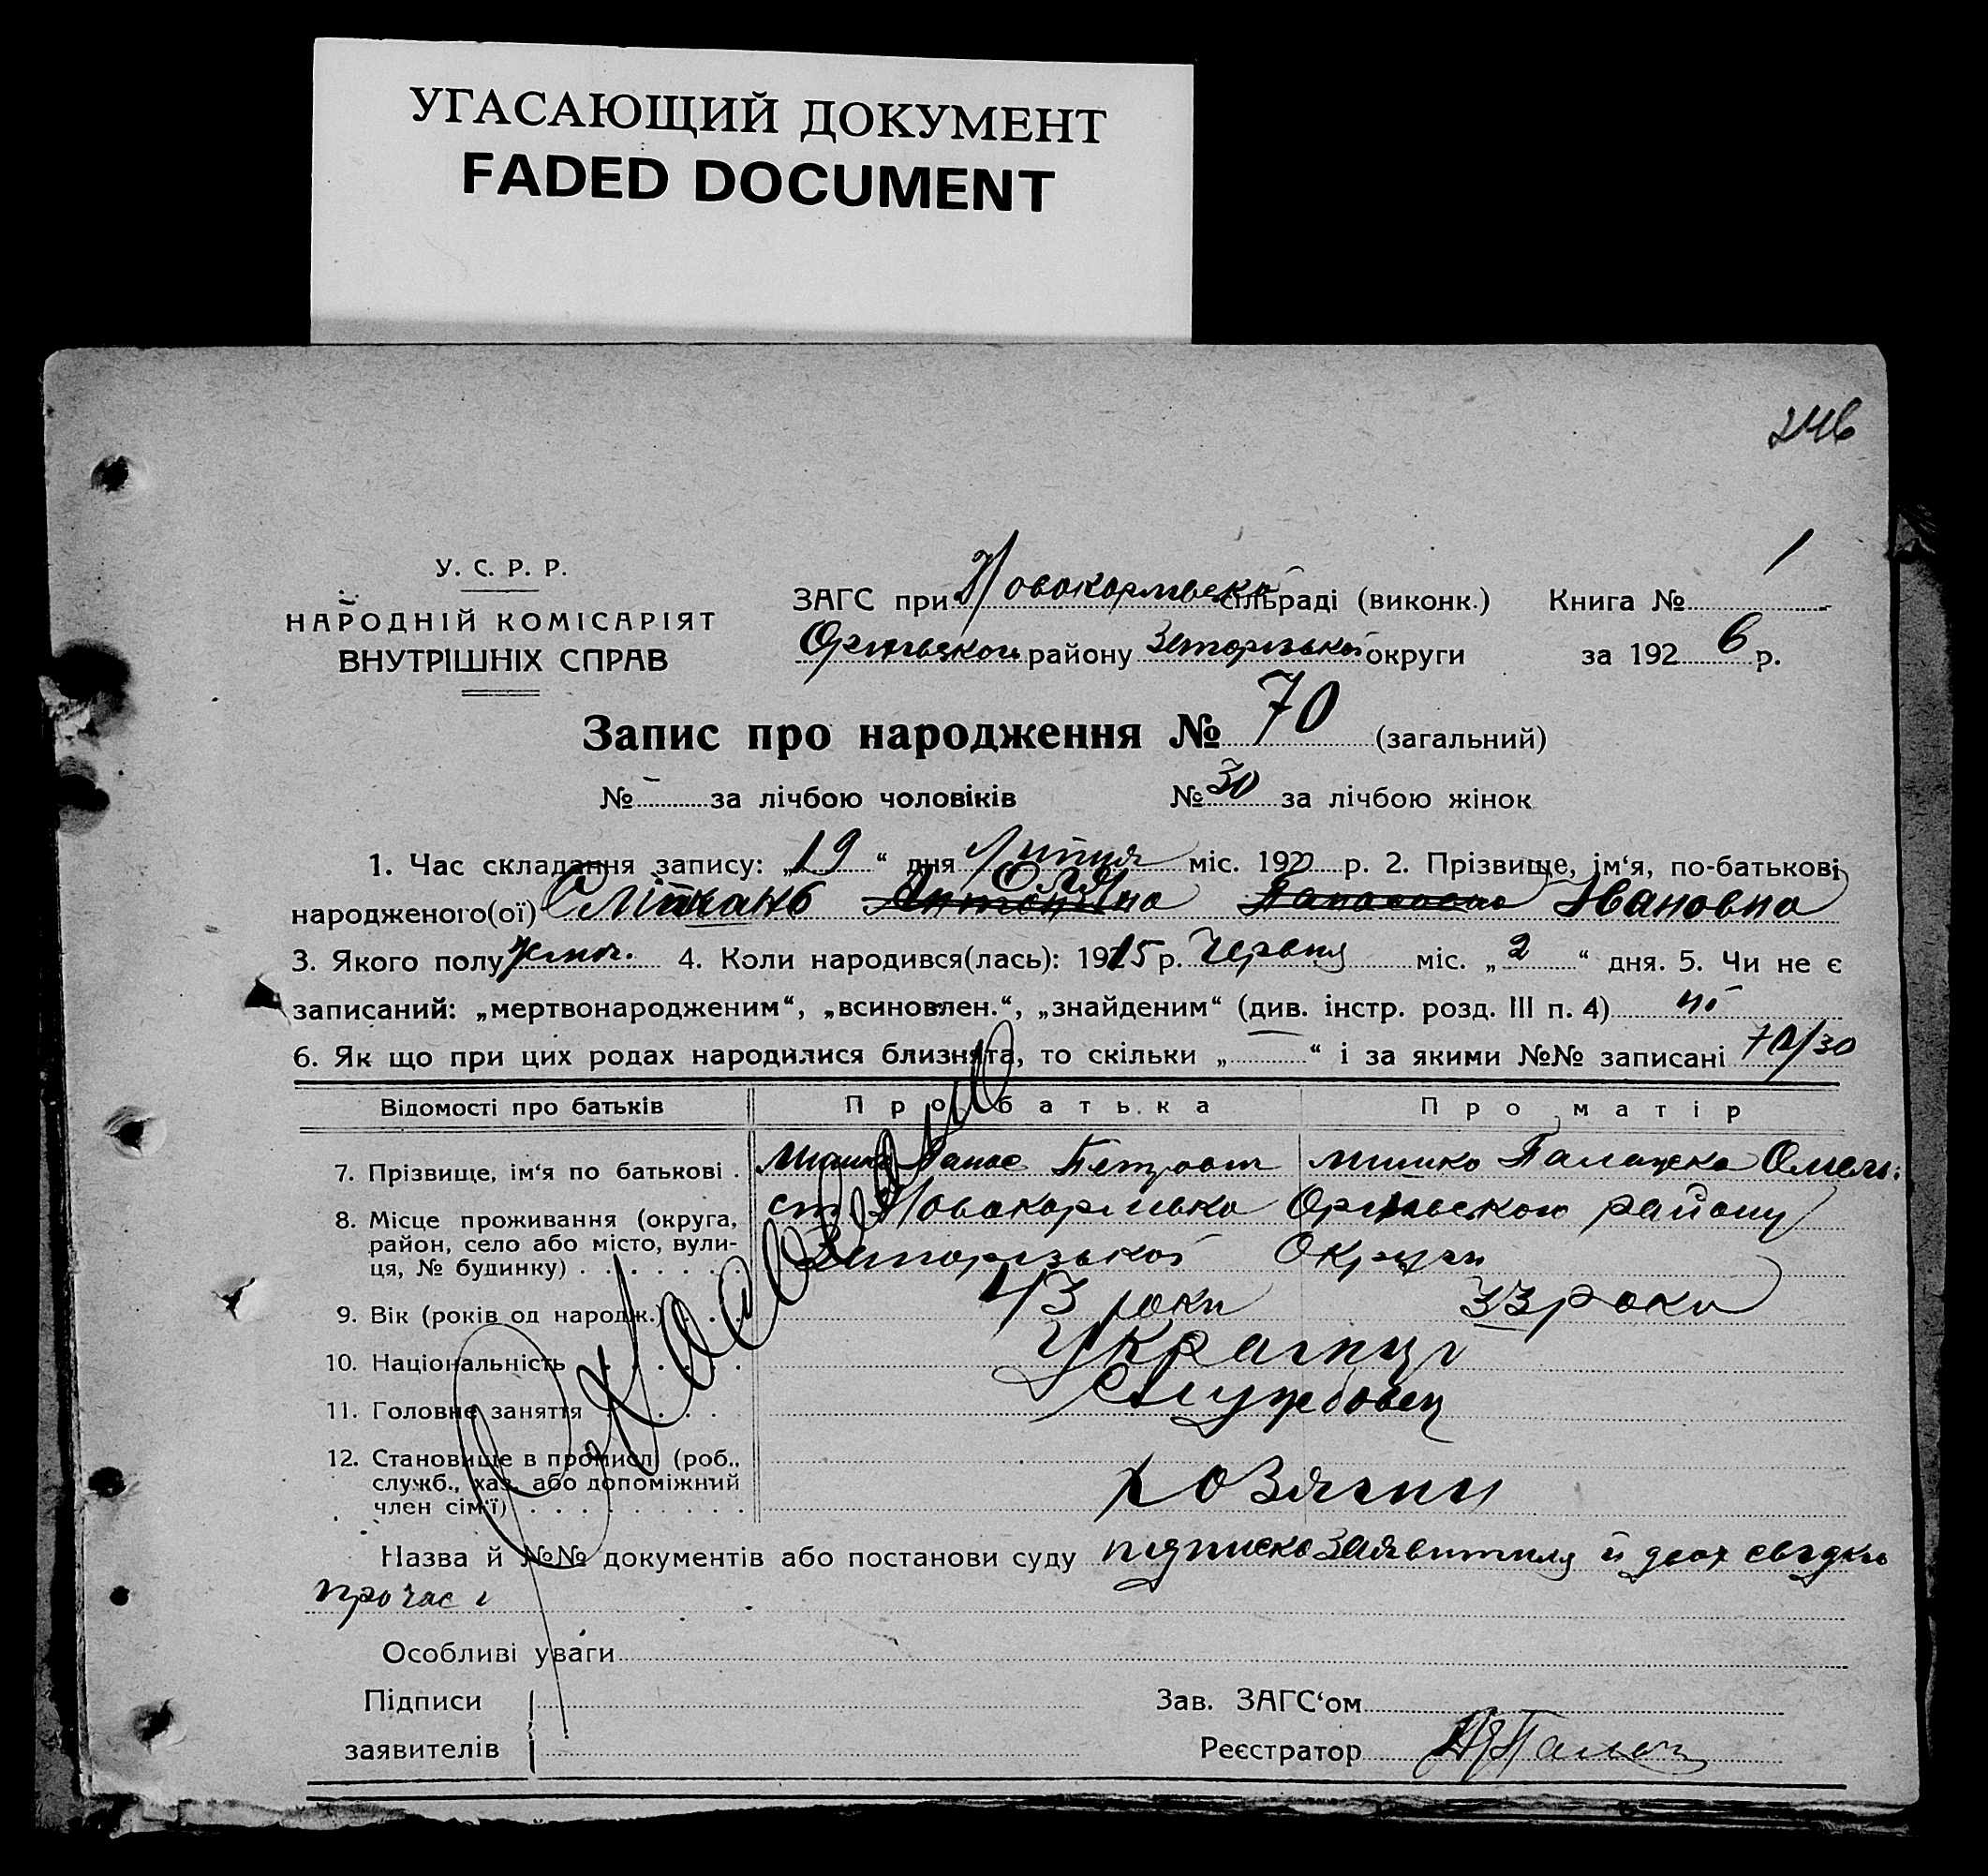 УГАСАЮЩИЙ ДОКУМЕНТ
FADED DOCUMENT
246
У. С. Р. Р.
НАРОДНІЙ КОМІСАРІЯТ
ВНУТРІШНІХ СПРАВ
ЗАГС при Новокарлівско сільраді (виконк.) Книга № 1
району округи за 192 6 р.
Запис про народження № 70 (загальний)
№ - за лічбою чоловіків № 30 за лічбою жінок
1. Час складання запису: „19“ дня Липня міс. 192 р. 2. Прізвище, ім‘я, по-батькові
народженого(ої) Івановна
3. Якого полу жіноч. 4. Коли народився(лась): 1915 р. Червня міс. „2“ дня. 5. Чи не є
записаний: „мертвонародженим“, „всиновлен.“, „знайденим“ (див. інстр. розд. III п. 4) ні
6. Як що при цих родах народилися близнята, то скільки „ “ і за якими №№ записані 70/30
Відомості про батьків Про батька Про матір
7. Прізвище, ім‘я по батькові . Панас Петрович Палажка Омель.
8. Місце проживання (округа, район, село або місто, вулиця, № будинку) Новокарлівка району
Запорізької Округи
9. Вік (років од народж.) 43 роки 33 роки
10. Національність Українці
11. Головне заняття Службовец
12. Становище в промислі (роб., служб., хаз. або допоміжний член сім‘ї) хозяини
Назва й №№ документів або постанови суду підписка заявителя й двох свідків
про час і
Особливі уваги
Підписи Зав. ЗАГС‘ом
заявителів Реєстратор